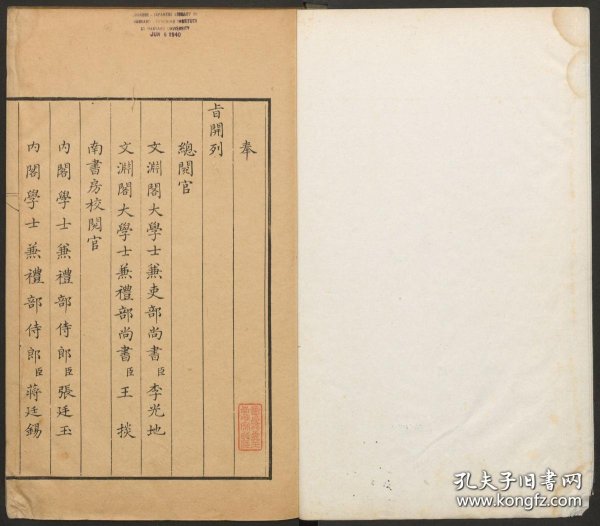 CHINESE - JAPANESE LIBRARY OF
HARVARD - YENCHING INSTITUTE
AT HARVARD UNIVERSITY
JUN 6 1940
奉
旨開列
總閱官
文淵閣大學士兼吏部尚書臣李光地
文淵閣大學士兼禮部尚書臣王掞
南書房校閱官
內閣學士兼禮部侍郎臣張廷玉
內閣學士兼禮部侍郎臣蔣廷錫
孔夫子旧书网
www.kongfz.com